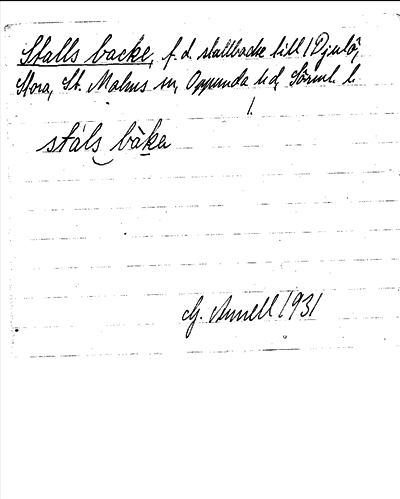 Stalls backe, f. d. stallbacke till 1 Djulö,
Stora, St. Malms sn, Oppunda hd, Sörml. l.
1.
stáls bàka
G. Annell 1931